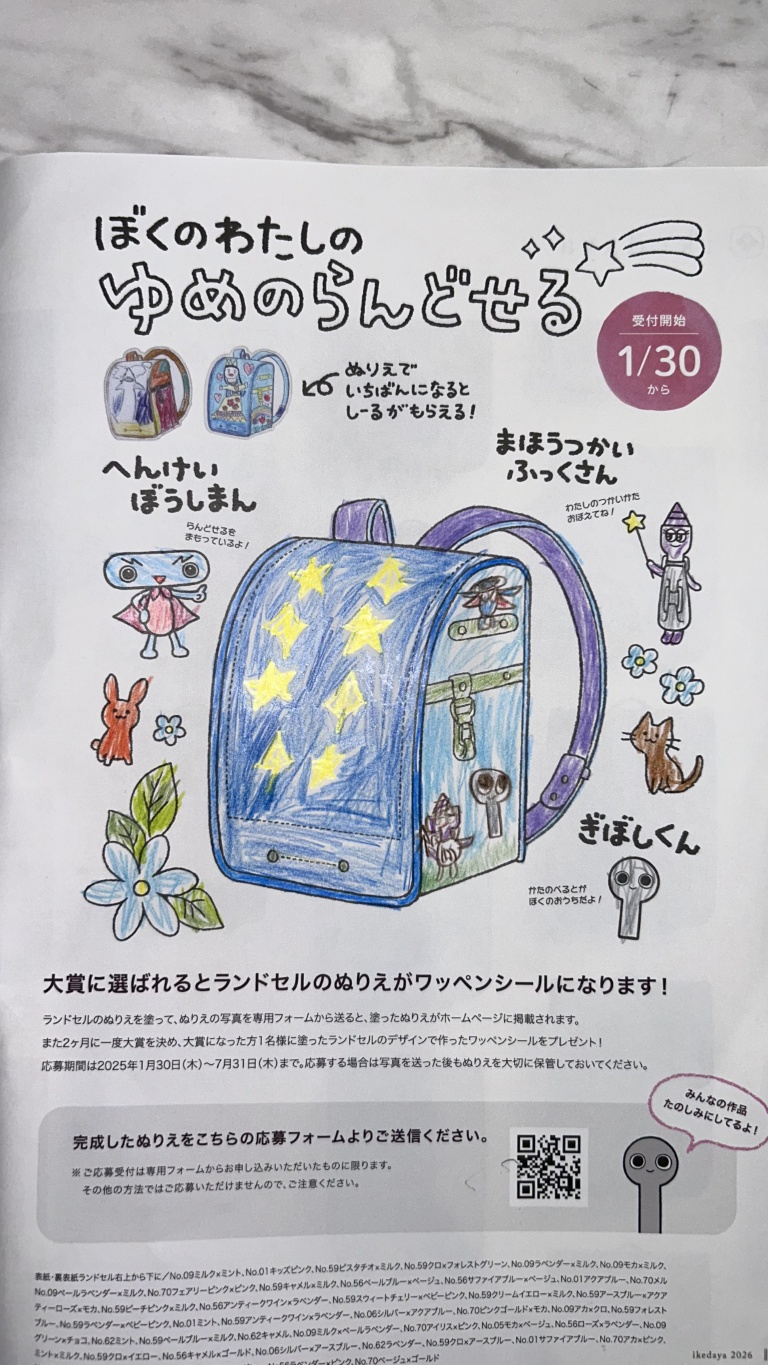 ぼくのわたしの
ゆめのらんどせる
受付開始
1/30
から
ぬりえで
いちばんになると
しーるがもらえる!
まほうつかい
ふっくさん
わたしのつかいかた
おぼえてね!
へんけい
ぼうしまん
らんどせるを
まもっているよ!
ぎぼしくん
かたのべるとが
ぼくのおうちだよ!
大賞に選ばれるとランドセルのぬりえがワッペンシールになります!
ランドセルのぬりえを塗って、ぬりえの写真を専用フォームから送ると、塗ったぬりえがホームページに掲載されます。
また2ヶ月に一度大賞を決め、大賞になった方1名様に塗ったランドセルのデザインで作ったワッペンシールをプレゼント!
応募期間は2025年1月30日(木)〜7月31日(木)まで。応募する場合は写真を送った後もぬりえを大切に保管しておいてください。
みんなの作品
たのしみにしてるよ!
完成したぬりえをこちらの応募フォームよりご送信ください。
※ご応募受付は専用フォームからお申し込みいただいたものに限ります。
その他の方法ではご応募いただけませんので、ご注意ください。
表紙・裏表紙ランドセル右上から下に/No.09ミルク×ミント、No.01キッズピンク、No.59ピスタチオ×ミルク、No.59クロ×フォレストグリーン、No.09ラベンダー×ミルク、No.09モカ×ミルク、
No.09ペールラベンダー×ミルク、No.70フェアリーピンク×ピンク、No.59キャメル×ミルク、No.56ペールブルー×ベージュ、No.56サファイアブルー×ベージュ、No.01アクアブルー、No.70メル
ティーローズ×モカ、No.59ピーチピンク×ミルク、No.56アンティークワイン×ラベンダー、No.59スウィートチェリー×ベビーピンク、No.59クリームイエロー×ミルク、No.59アースブルー×アクア
ブルー、No.59ラベンダー×ベビーピンク、No.01ミント、No.59アンティークワイン×ラベンダー、No.06シルバー×アクアブルー、No.70ピンクゴールド×モカ、No.09アカ×クロ、No.59フォレスト
グリーン×チョコ、No.62ミント、No.59ペールブルー×ミルク、No.62キャメル、No.09ミルク×ペールラベンダー、No.70アイリス×ピンク、No.05モカ×ベージュ、No.56ローズ×ラベンダー、No.09
ミント×ミルク、No.59クロ×イエロー、No.56キャメル×ゴールド、No.06シルバー×アースブルー、No.62ラベンダー、No.59クロ×アースブルー、No.01サファイアブルー、No.70アカ×ピンク、
No.70ベージュ×ゴールド
ikedaya 2026